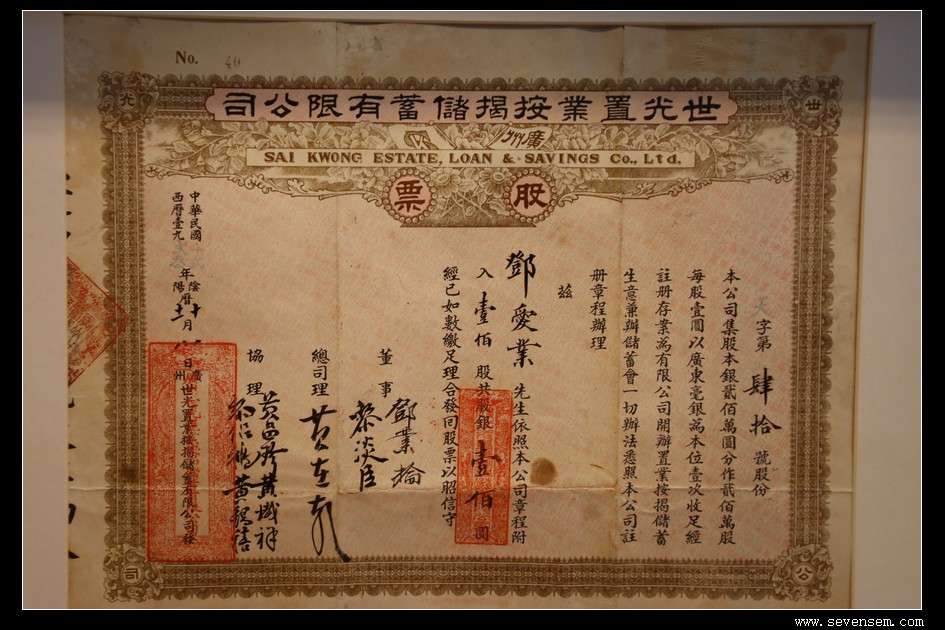 No. 40
司公限有蓄儲揭按業置光世
州廣
SAI KWONG ESTATE, LOAN & SAVINGS Co., Ltd.
票股
天字第肆拾號股份
本公司集股本銀貳佰萬圓分作貳佰萬股
每股壹圓以廣東毫銀為本位壹次收足經
註册存案為有限公司開辦置業按揭儲蓄
生意兼辦儲蓄會一切辦法悉照本公司註
册章程辦理
茲
鄧愛業先生依照本公司章程附
入壹佰股共股銀壹佰圓
經已如數繳足理合發回股票以昭信守
董事
鄧業掄
黎淡臣
總司理
協理
黃昌
黃城祥
中華民國
西曆壹九
年陰曆十月
陽
日廣州世光置業按揭儲蓄有限公司發
世
光
公
司
www.sevensem.com